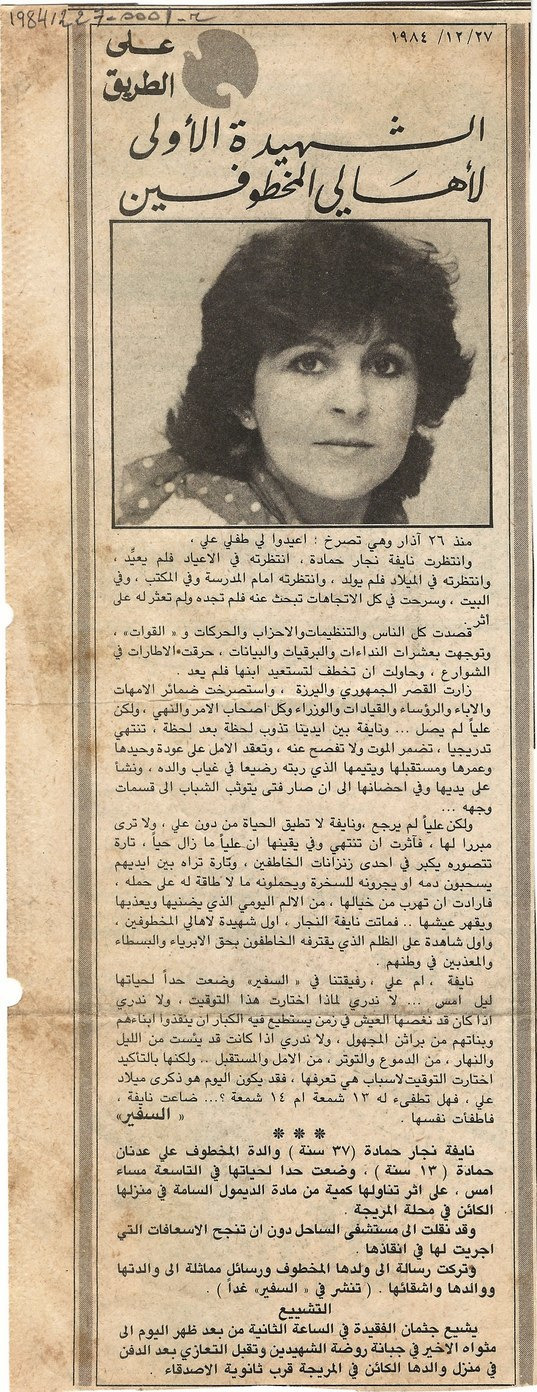 19841227-0001-r
١٩٨٤/١٢/٢٧
على
الطريق
الشهيدة الأولى
لأهالي المخطوفين
منذ ٢٦ آذار وهي تصرخ : اعيدوا لي طفلي علي ،
وانتظرت نايفة نجار حمادة ، انتظرته في الاعياد فلم يعيِّد ،
وانتظرته في الميلاد فلم يولد ، وانتظرته امام المدرسة وفي المكتب ، وفي
البيت ، وسرحت في كل الاتجاهات تبحث عنه فلم تجده ولم تعثر له على
اثر .
قصدت كل الناس والتنظيمات والاحزاب والحركات و « القوات» ،
وتوجهت بعشرات النداءات والبرقيات والبيانات ، حرقت الاطارات في
الشوارع ، وحاولت ان تخطف لتستعيد ابنها فلم يعد .
زارت القصر الجمهوري واليرزة ، واستصرخت ضمائر الامهات
والاباء والرؤساء والقيادات والوزراء وكل اصحاب الامر والنهي ، ولكن
علياً لم يصل ... ونايفة بين ايدينا تذوب لحظة بعد لحظة ، تنتهي
تدريجيا ، تضمر الموت ولا تفصح عنه ، وتعقد الامل على عودة وحيدها
وعمرها ومستقبلها ويتيمها الذي ربته رضيعا في غياب والده ، ونشأ
على يديها وفي احضانها الى ان صار فتى يتوثب الشباب الى قسمات
وجهه ...
ولكن علياً لم يرجع ،ونايفة لا تطيق الحياة من دون علي ، ولا ترى
مبررا لها ، فآثرت ان تنتهي وفي يقينها ان علياً ما زال حياً ، تارة
تتصوره يكبر في احدى زنزانات الخاطفين ، وتارة تراه بين ايديهم
يسحبون دمه او يجرونه للسخرة ويحملونه ما لا طاقة له على حمله ،
فارادت ان تهرب من خيالها ، من الالم اليومي الذي يضنيها ويعذبها
ويقهر عيشها .. فماتت نايفة النجار ، اول شهيدة لاهالي المخطوفين ،
واول شاهدة على الظلم الذي يقترفه الخاطفون بحق الابرياء والبسطاء
والمعذبين في وطنهم .
نايفة ، ام علي ، رفيقتنا في « السفير» وضعت حداً لحياتها
ليل امس ... لا ندري لماذا اختارت هذا التوقيت ، ولا ندري
اذا كان قد نغصها العيش في زمن يستطيع فيه الكبار ان ينقذوا ابناءهم
وبناتهم من براثن المجهول ، ولا ندري اذا كانت قد يئست من الليل
والنهار ، من الدموع والتوتر ، من الامل والمستقبل .. ولكنها بالتأكيد
اختارت التوقيت لاسباب هي تعرفها ، فقد يكون اليوم هو ذكرى ميلاد
علي ، فهل تطفىء له ١٣ شمعة ام ١٤ شمعة ؟... ضاعت نايفة ،
فاطفأت نفسها . « السفير»
* * *
نايفة نجار حمادة (٣٧ سنة ) والدة المخطوف علي عدنان
حمادة ( ١٣ سنة ) ، وضعت حدا لحياتها في التاسعة مساء
امس ، على اثر تناولها كمية من مادة الديمول السامة في منزلها
الكائن في محلة المريجة .
وقد نقلت الى مستشفى الساحل دون ان تنجح الاسعافات التي
اجريت لها في انقاذها .
وتركت رسالة الى ولدها المخطوف ورسائل مماثلة الى والدتها
ووالدها واشقائها . ( تنشر في « السفير» غداً ) .
التشييع
يشيع جثمان الفقيدة في الساعة الثانية من بعد ظهر اليوم الى
مثواه الاخير في جبانة روضة الشهيدين وتقبل التعازي بعد الدفن
في منزل والدها الكائن في المريجة قرب ثانوية الاصدقاء .